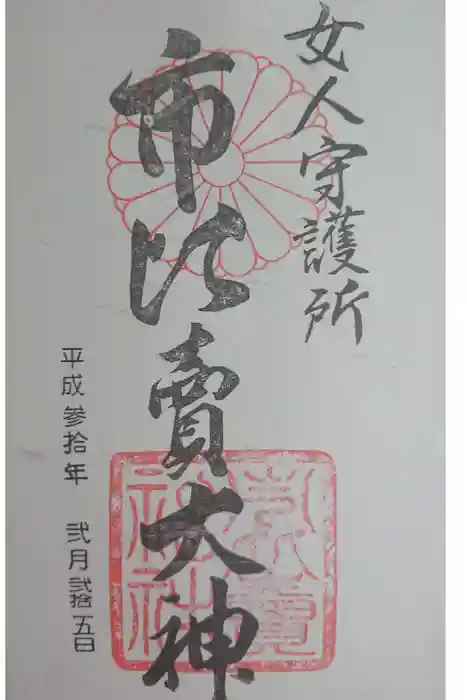 女人守護所
市比賣大神
平成参拾年 弐月弐拾五日
市比賣神社